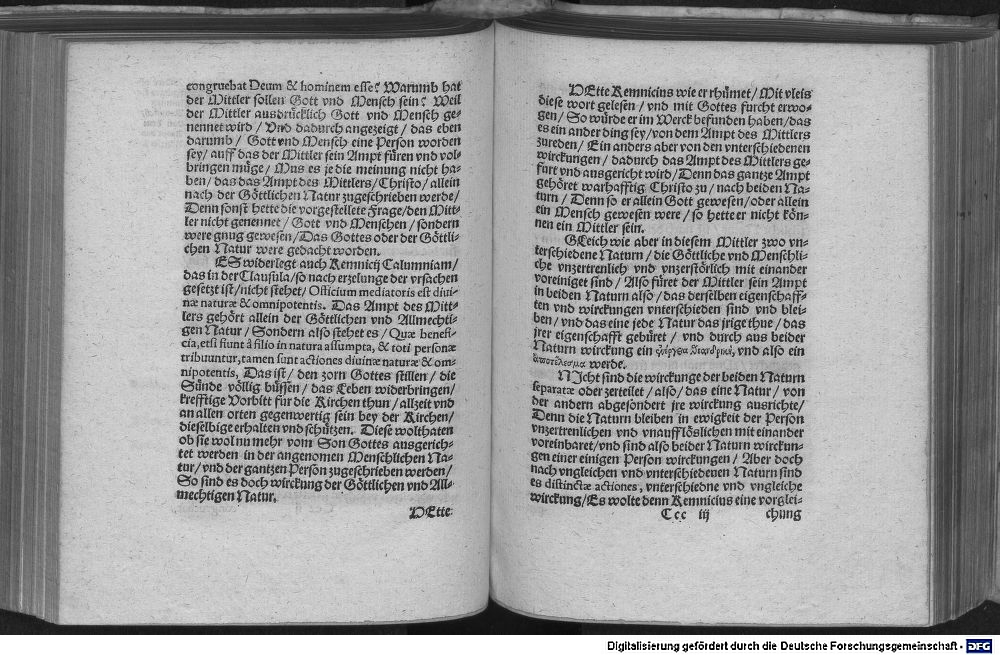 congruebat Deum & hominem esse? Warumb hat
der Mittler sollen Gott vnd Mensch sein? Weil
der Mittler ausdrücklich Gott vnd Mensch ge-
nennet wird / Vnd dadurch angezeigt / das eben
darumb / Gott vnd Mensch eine Person worden
sey / auff das der Mittler sein Ampt füren vnd vol-
bringen müge / Mus es je die meinung nicht ha-
ben / das das Ampt des Mittlers / Christo / allein
nach der Göttlichen Natur zugeschrieben werde /
Denn sonst hette die vorgestellete Frage / den Mitt-
ler nicht genennet / Gott vnd Menschen / sondern
were gnug gewesen / Das Gottes oder der Göttli-
chen Natur were gedacht worden.
ES widerlegt auch Kemnicij Calumniam /
das in der Clausula / so nach erzelunge der vrsachen
gesetzt ist / nicht stehet / Officium mediatoris est divi-
næ naturæ & omnipotentis. Das Ampt des Mitt-
lers gehört allein der Göttlichen vnd Allmechti-
gen Natur / Sondern also stehet es / Quæ benefi-
cia, etsi fiunt â filio in natura assumpta, & toti personæ
tribuuntur, tamen sunt actiones divinæ naturæ & om-
nipotentis, Das ist / den zorn Gottes stillen / die
Sünde völlig büssen / das Leben widerbringen /
krefftige Vorbitt für die Kirchen thun / allzeit vnd
an allen orten gegenwertig sein bey der Kirchen /
dieselbige erhalten vnd schützen. Diese wolthaten
ob sie wol nu mehr vom Son Gottes ausgerich-
tet werden in der angenomen Menschlichen Na-
tur / vnd der gantzen Person zugeschrieben werden /
So sind es doch wirckung der Göttlichen vnd All-
mechtigen Natur.
HEtte
HEtte Kemnicius wie er rhümet / Mit vleis
diese wort gelesen / vnd mit Gottes furcht erwo-
gen / So würde er im Werck befunden haben / das
es ein ander ding sey / von dem Ampt des Mittlers
zureden / Ein anders aber von den vnterschiedenen
wirckungen / dadurch das Ampt des Mittlers ge-
furt vnd ausgericht wird / Denn das gantze Ampt
gehöret warhafftig Christo zu / nach beiden Na-
turn / Denn so er allein Gott gewesen / oder allein
ein Mensch gewesen were / so hette er nicht kön-
nen ein Mittler sein.
GLeich wie aber in diesem Mittler zwo vn-
terschiedene Naturn / die Göttliche vnd Menschli-
che vnzertrenlich vnd vnzerstörlich mit einander
voreiniget sind / Also füret der Mittler sein Ampt
in beiden Naturn also / das derselben eigenschaff-
ten vnd wirckungen vnterschieden sind vnd blei-
ben / vnd das eine jede Natur das jrige thue / das
jrer eigenschafft gebüret / vnd durch aus beider
Naturn wirckung ein ἐνέργεια θεανδρικὴ, vnd also ein
ἀποτέλεσμα werde.
NIcht sind die wirckunge der beiden Naturn
separatæ oder zerteilet / also / das eine Natur / von
der andern abgesondert jre wirckung ausrichte /
Denn die Naturn bleiben in ewigkeit der Person
vnzertrenlichen vnd vnaufflöslichen mit einander
voreinbaret / vnd sind also beider Naturn wirckun-
gen einer einigen Person wirckungen / Aber doch
nach vngleichen vnd vnterschiedenen Naturn sind
es distinctæ actiones, vnterschiedne vnd vngleiche
wirckung / Es wolte denn Kemnicius eine vorglei-
Ccc iij chung
Digitalisierung gefördert durch die Deutsche Forschungsgemeinschaft - DFG